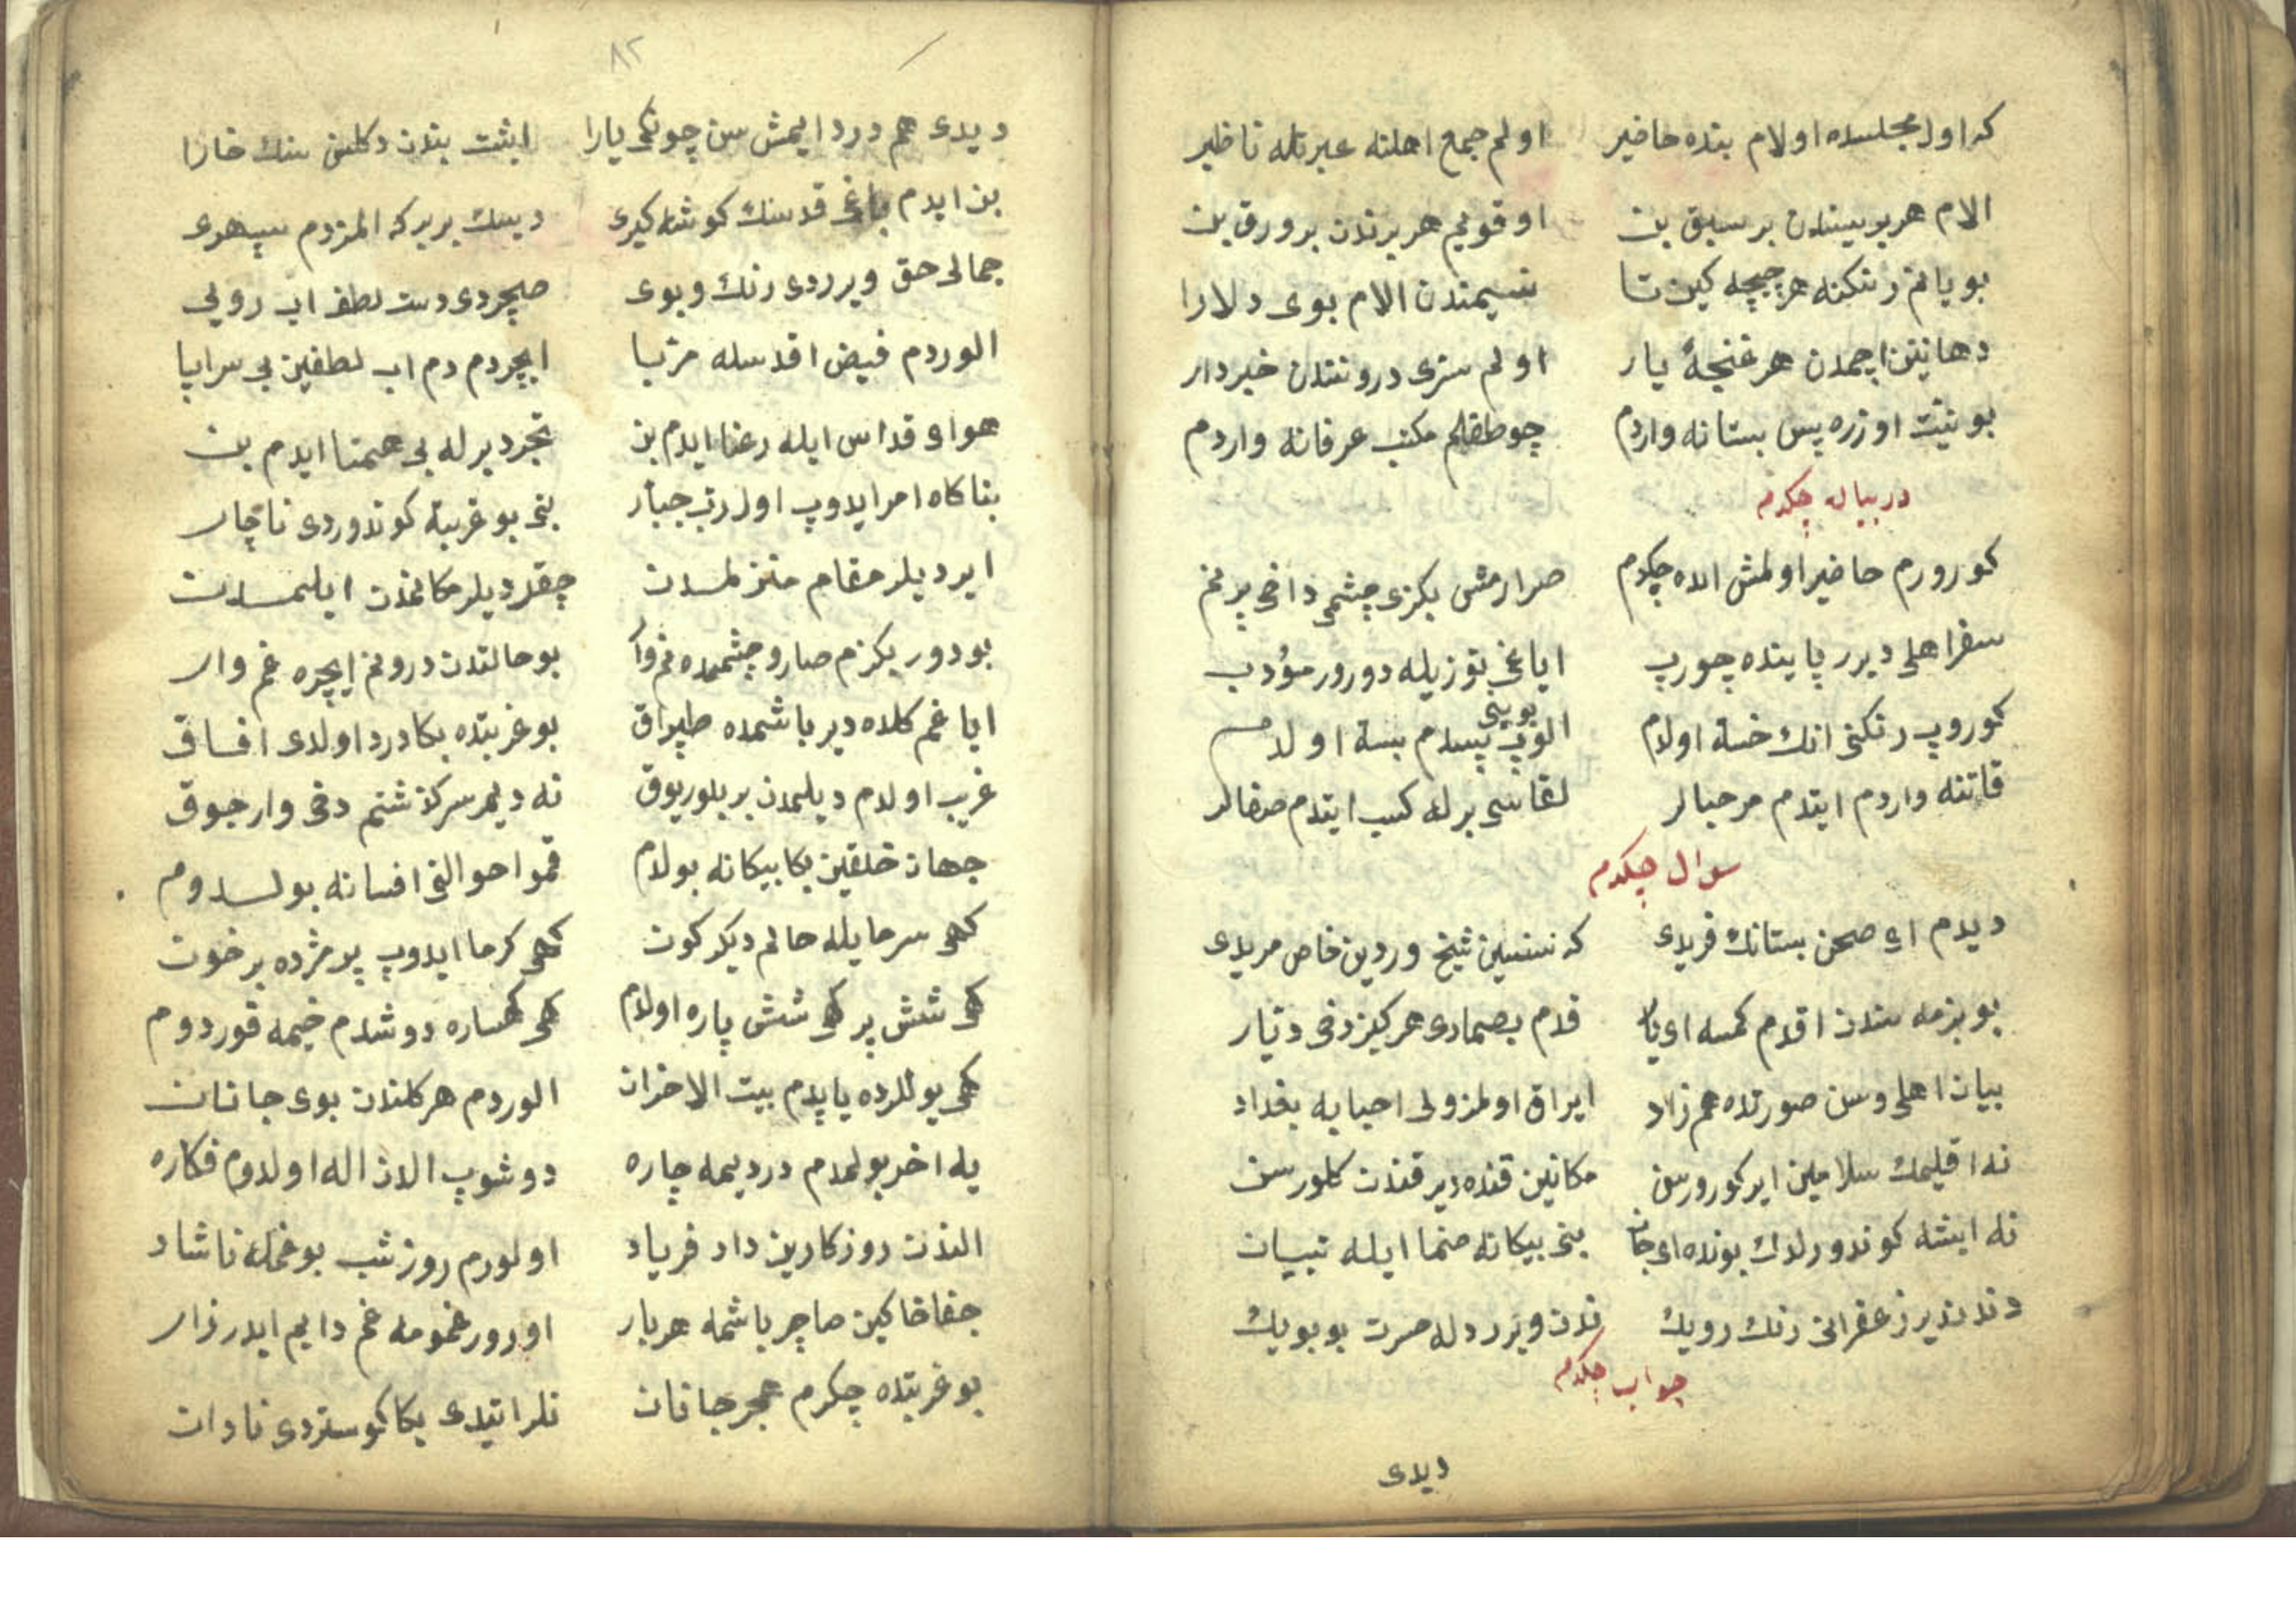 که اول مجلسده اولام بنده حاضیر اولم جمع اهلنه عبرتله ناظیر
الام هر بریسندن بر سبق بن اوقویم هر برندن بر ورق بن
بویانم رنکنه هر چیچه کین تا نسیمندن الام بوی دلارا
دهانین اچمدن هر غنجهٔ یار اولم سری دروننندن خبردار
بو نیت اوزره پس بستانه واردم چو طفلم مکتب عرفانه واردم
در بیاله چکدم
کورورم حاضیر اولمش اله چکدم صرارمش بکزی چشمی داخی پر نم
سفر اهلی دیرر پاینده چورپ ایاغی توزیله دورور مؤدب
کوروپ رنکنی انک خسته اولام الوپ بوینی پسدم بسته اولدم
قاتنه واردم ایتدم مرحبالر لقاسی برله کسب ایتدم صفالر
سوال چیکدم
دیدم ای صحن بستانک فریدی که سنسین شیخ وردین خاص مریدی
بو بزمه سندن اقدم کمسه ای یار قدم بصمادی هرکیز دخی دیار
بیان اهلی وسن صورتده هم زاد ایراق اولمز ولی احبایه بغداد
نه اقلیمک سلامین ایر کورورسن مکانین قنده دیر قندن کلورسن
نه ایشه کوندورلدک بونده ای جان بنی بیکانه صنما ایله تبیان
دندندیر زعفرانی رنک رویک ندن ویرر دله حسرت بو بویک
جواب چکدم
دیدی
٨٢
دیدی هم درد ایمش سن چونکی یارا ایشت بندن دکلسن سنک خارا
بن ایدم باغ قدسنک کوشه کیری دیسک بریرکه المزدم سپهری
جمالی حق ویرردی رنک و بوی صچردی دست لطف اب رویی
الوردم فیض اقدسله مزیا ایچردم دم اب لطفین بی سراپا
هوای قداس ایله رعنا ایدم بن تجرد برله بی همتا ایدم بن
بناکاه امر ایدوپ اول رب جبار بنی بو غربته کوندوردی ناچار
ایردیلر مقام منزلمدن چقردیلر مکانمدن ایلمدن
بودور بکزم صارو چشممده نم وار بو حالتدن درونم ایچره غم وار
ایاغم کلده دیر باشمده طپراق بو غربتده بکا درد اولدی افاق
غریب اولدم دیلمدن بر بلور یوق نه دیلر سرکذشتم دخی وار چوق
جهان خلقین بکا بیکانه بولام قمو احوالنی افسانه بولدوم
کهی سرمایله حالم دیکر کون کهی کرما ایدوپ پر مژده پر خون
کهی شش پر کهی شش پاره اولام کهی کهساره دوشدم خیمه قوردوم
کهی یوللرده یاپدم بیت الاحزان الوردم هر کلندن بوی جانان
یله اخر بولمدم دردیمه چاره دوشوپ الدن اله اولدوم فکاره
الندن روزکارین داد فریاد اولورم روز شب بو غمله ناشاد
جفا خاکین صاچر باشمه هر بار اورور غمومه غم دایم ایدر زار
بو غربتده چکرم هجر جانان نلر ایتدی بکا کوستردی نادان